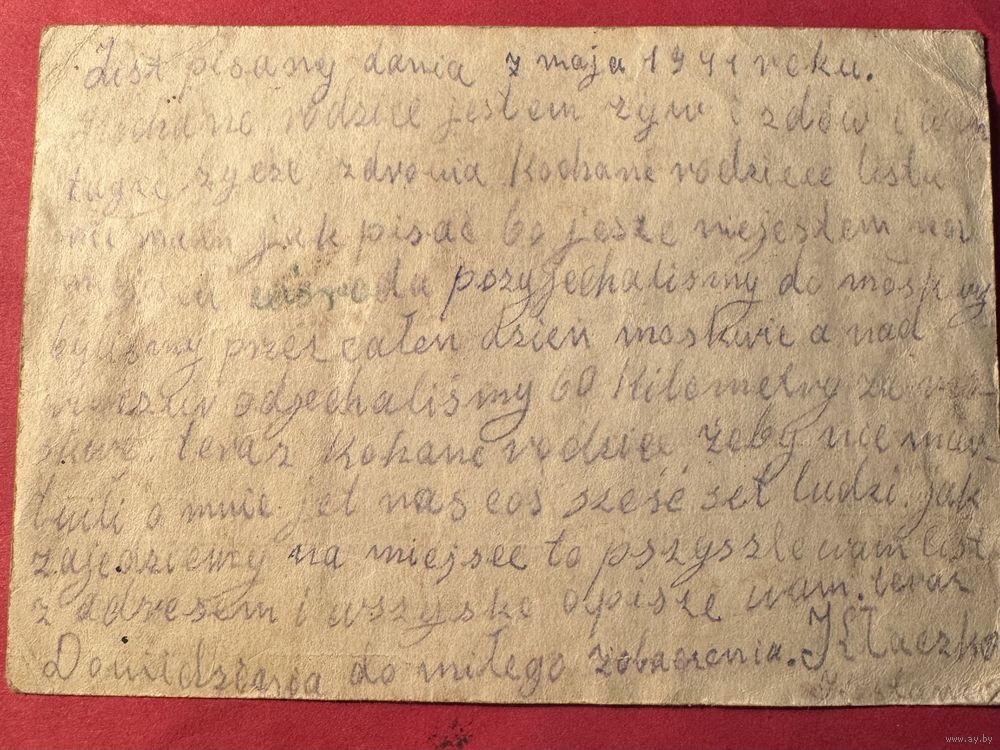 List pisany dania 7 maja 1941 roku.
rodzice jestem żyw i zdów i
życze zdrowia kochane rodziece listu
nie mam jak pisac bo jesze niejestem na
da pszyjechalismy do moskwy
byliśmy przez całen dzień moskwie a nad
odjechaliśmy 60 kilometry za mo-
skwe. teraz kohane rodzice żeby nie mar-
twili o mnie jet nas coś sześć set ludzi. jak
zajedziemy na miejsce to pszyszle wam list
z adresem i wszysko opisze wam. teraz
Dowidzenia do miłego zobaczenia.
www.ay.by